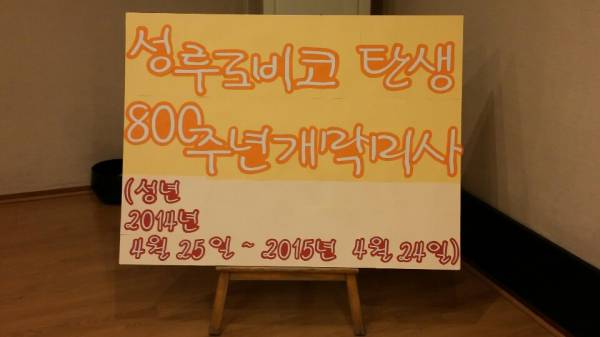 성루도비코 탄생
800주년개막미사
(성년
2014년
4월 25일 ~ 2015년 4월 24일)